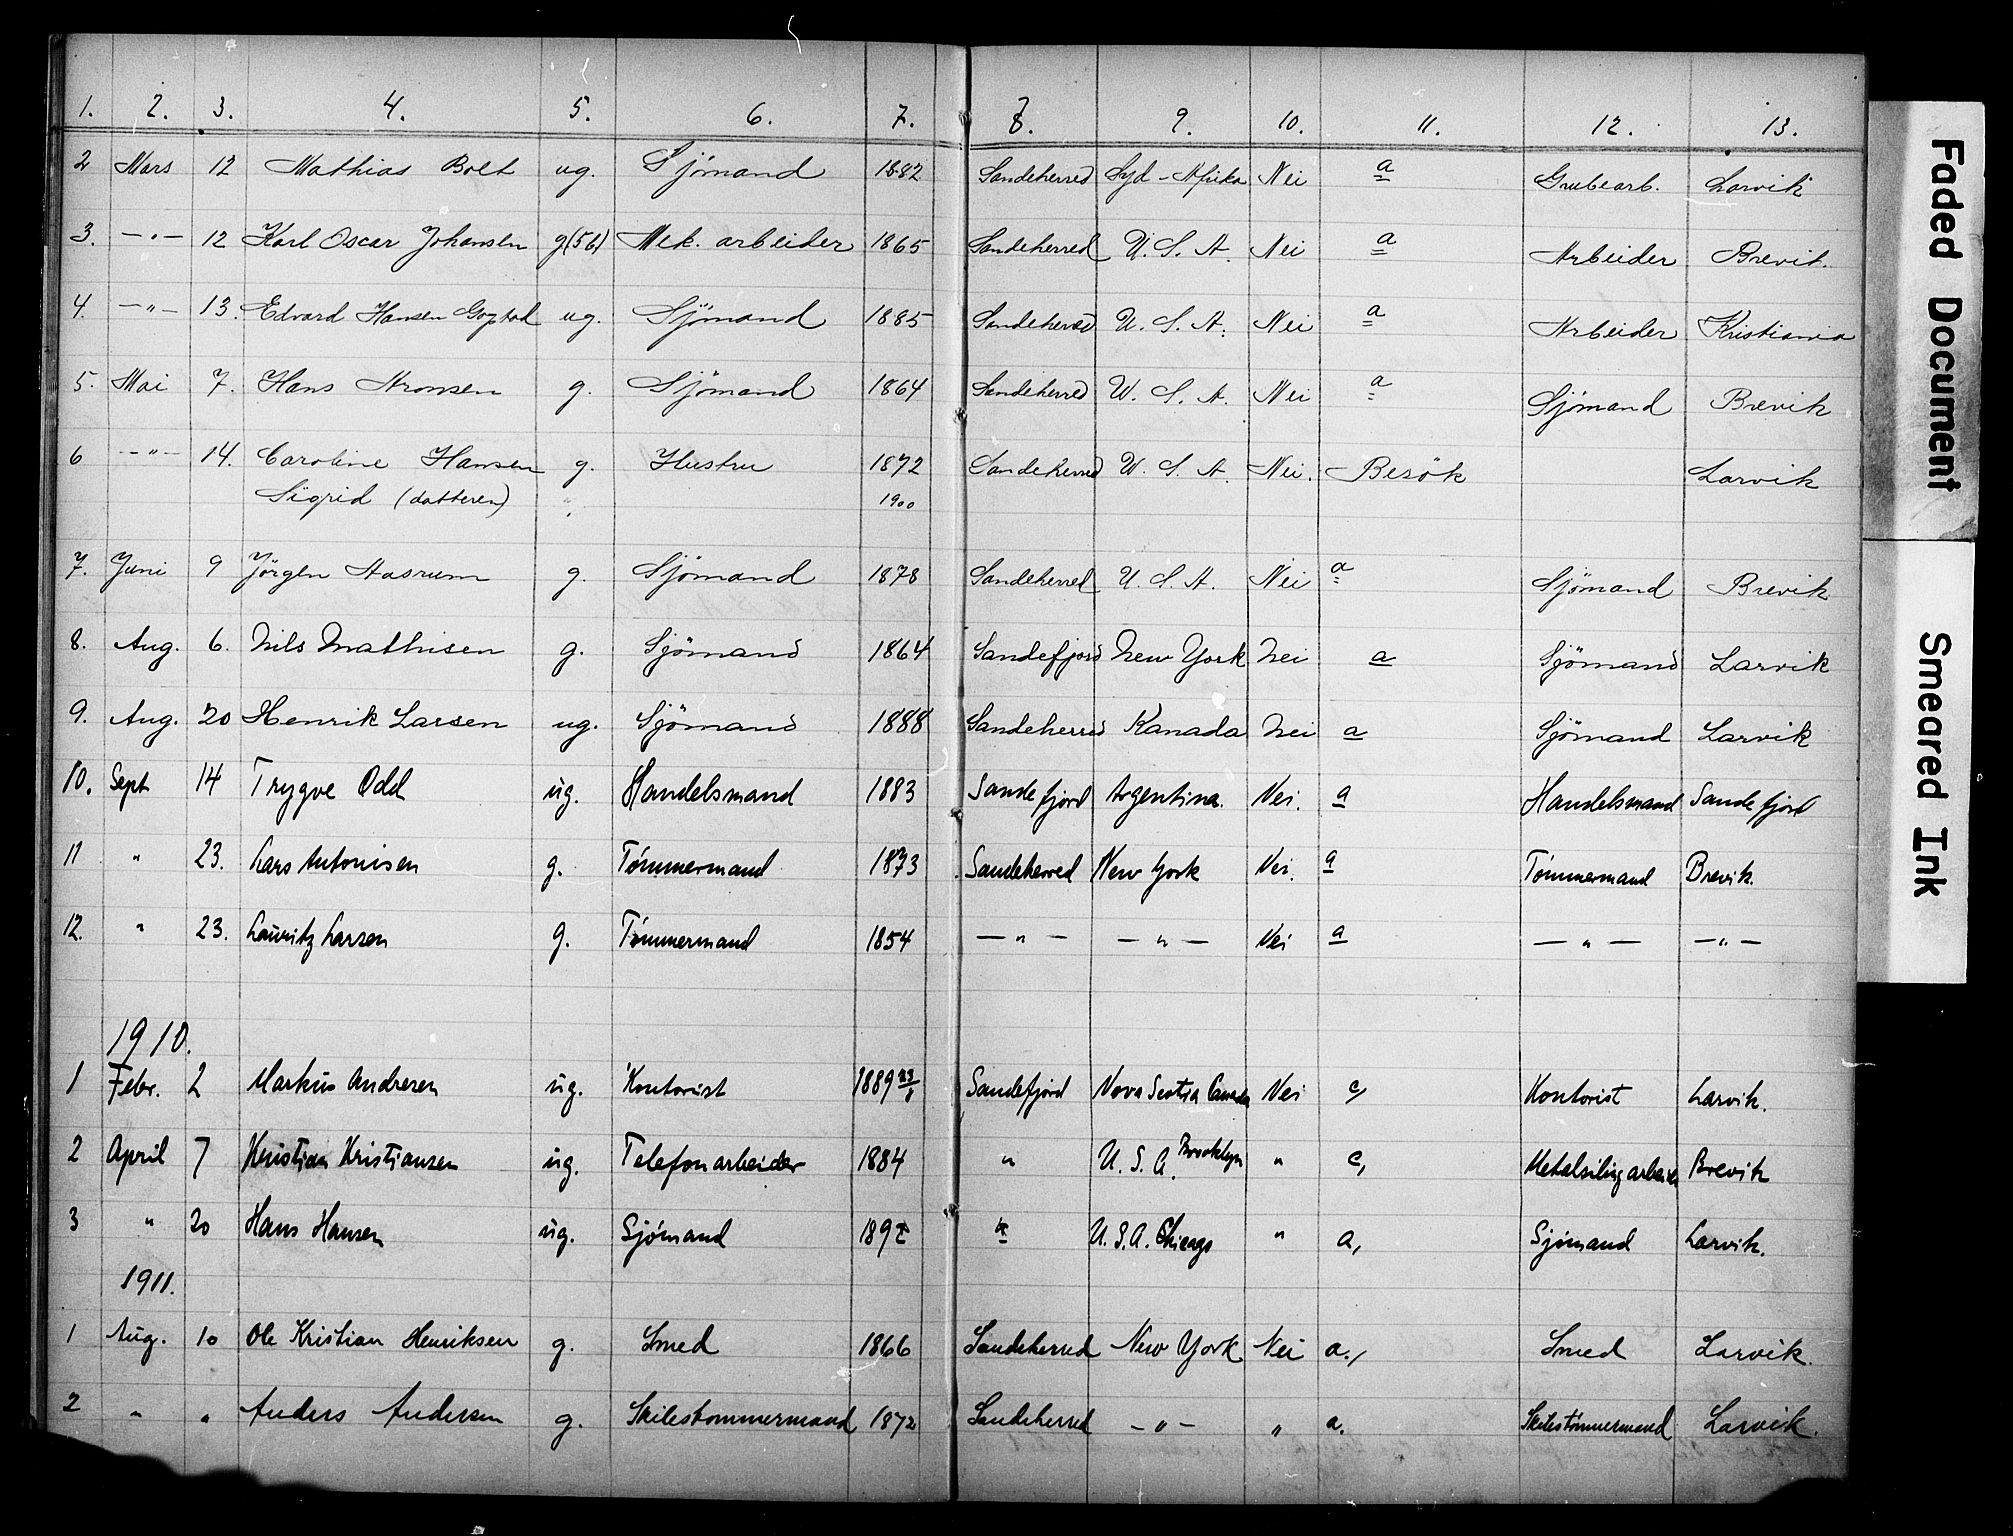 1. 2. 3. 4. 5. 6. 7. 8. 9. 10. 11. 12. 13.
2 Mars 12 Mathias Bolt ug. Sjömand 1882 Sandeherred Syd-Afrika Nei a Grubearb. Larvik
3. -"- 12 Karl Oscar Johansen g(56) Mek. arbeider 1865 Sandeherred U. S. A. Nei a Arbeider Brevik.
4. -"- 13. Edvard Hansen ug. Sjömand 1885 Sandeherred U. S. A. Nei a Arbeider Kristiania
5. Mai 7. Hans Aronsen g. Sjömand 1864 Sandeherred U. S. A. Nei a Sjömand Brevik
6 -"- 14. Caroline Hansen g. Hustru 1872 Sandeherred U. S. A. Nei. Besök Larvik
Sigrid (datteren) " 1900
7. Juni 9 Jörgen Aasrum g. Sjömand 1878 Sandeherred U. S. A. Nei a Sjömand Brevik
8. Aug. 6. Nils Mathisen g. Sjömand 1864 Sandefjord New York Nei a Sjömand Larvik
9. Aug. 20 Henrik Larsen ug. Sjömand 1888 Sandeherred Kanada Nei a Sjömand Larvik
10. Sept 14 Trygve Odd ug. Handelsmand 1883 Sandefjord Argentina. Nei. a Handelsmand Sandefjord
11 " 23. Lars Antonisen g. Tømmermand 1873 Sandeherred New York Nei. a Tømmermand Brevik.
12. " 23. Lauritz Larsen g. Tømmermand 1854 -"- -"- Nei a -"- -"-
1910.
1 Febr. 2 Markus Andresen ug. Kontorist 1889 23/1 Sandefjord Nova Scotia Canada Nei c, Kontorist Larvik.
2 April 7 Kristian Kristiansen ug. Telefonarbeider 1884 " U. S. A. Brooklyn " c, Brevik
3 " 20 Hans Hansen ug. Sjømand " U. S. A. Chicago " a, Sjømand Larvik.
1911.
1 Aug. 10 Ole Kristian Henriksen g. Smed 1866 Sandeherred New York Nei a., Smed Larvik.
2 " " Anders Andersen g. Skibstømmermand 1872 Sandeherred -"- " a. Skibstømmermand Larvik.
Faded Document
Smeared Ink